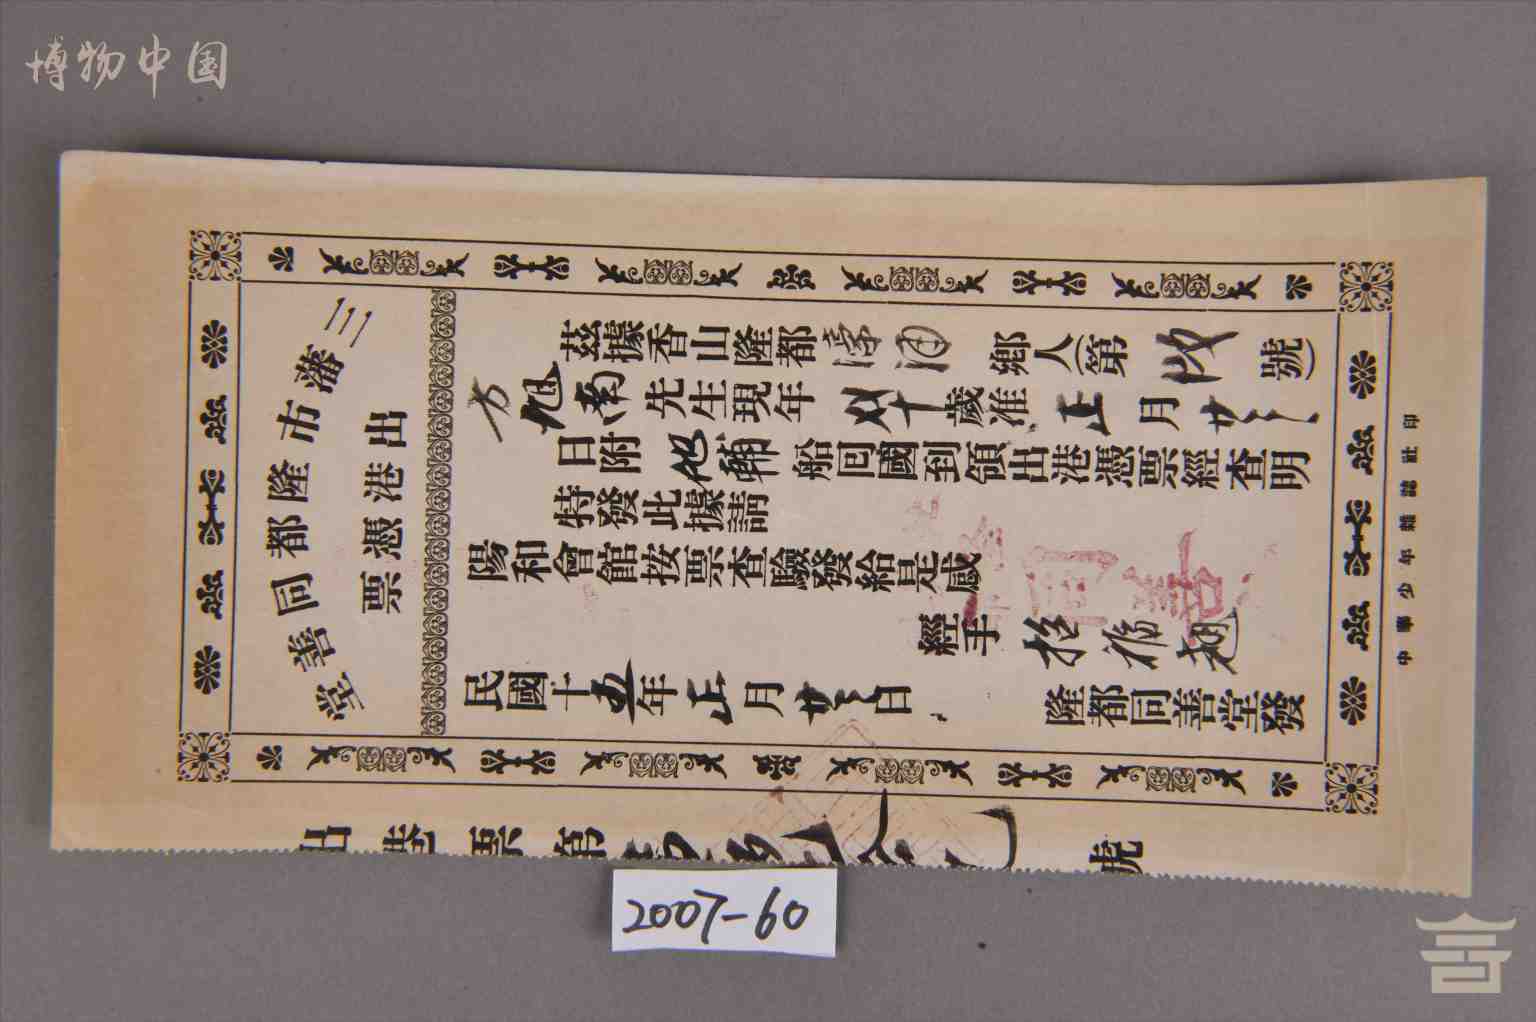 博物中国
三藩市隆都同善堂
出港憑票
茲據香山隆都 鄉人(第 號)
方旭南先生現年 十歲准正月廿三
日附 船囘國到領出港憑票經查明
特發此據請
陽和會館按票查驗發給是感
經手
民國十五年正月廿三日
隆都同善堂發
中華少年雜誌社印
出港票第 號
同善
2007-60